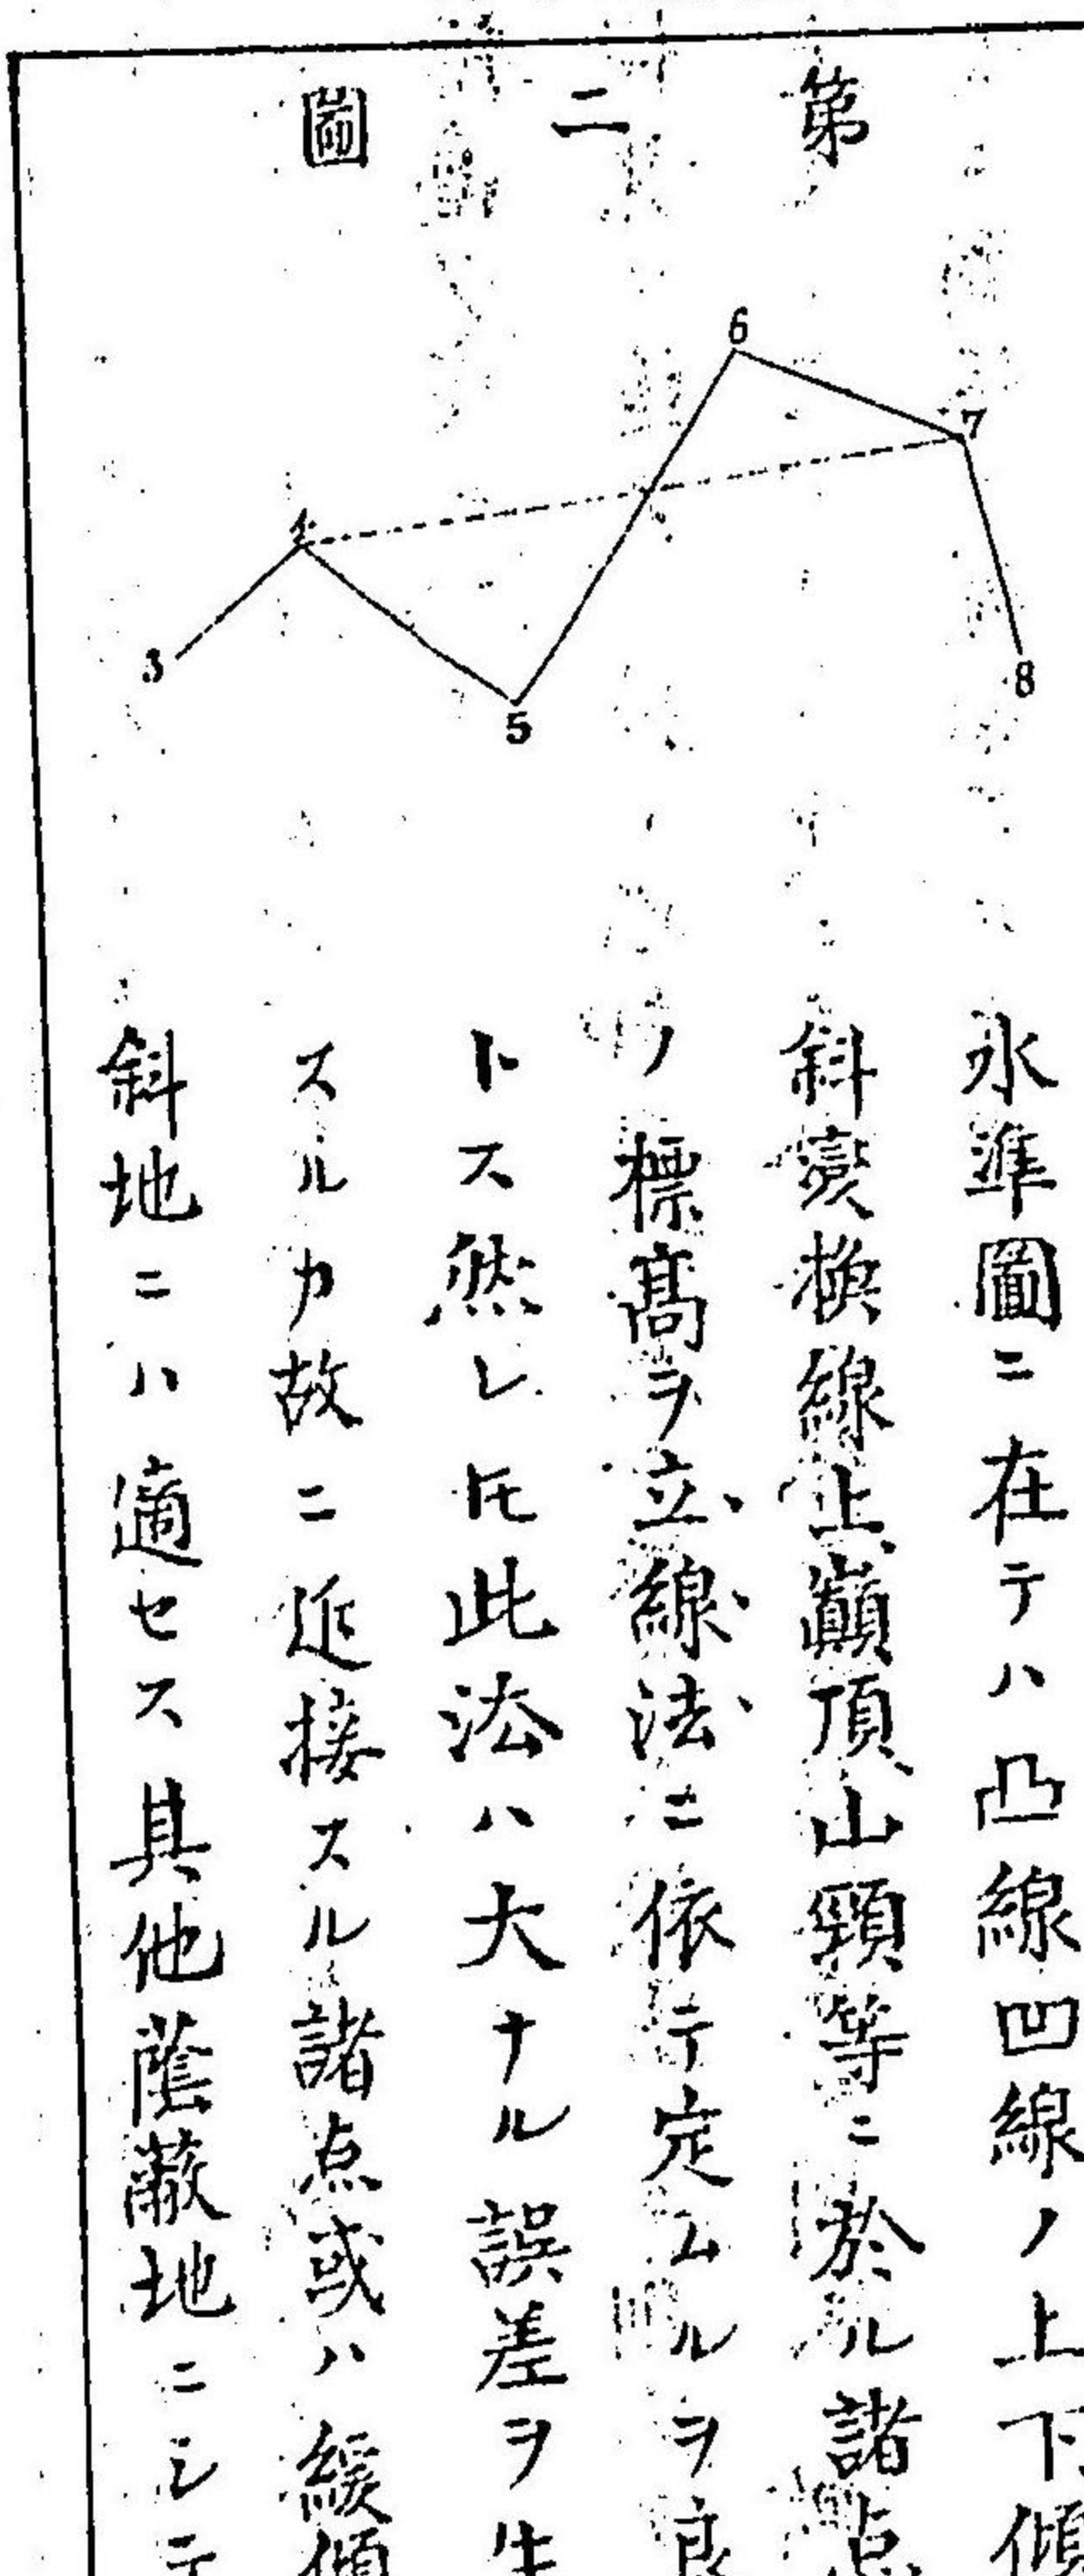 第二圖
6
7
4
3
5
8
水準圖ニ在テハ凸線凹線ノ上下傾
斜変換線上巓頂山頸等ニ於ル諸点
ノ標髙ヲ立線法ニ依テ定ムルヲ良
トス然レ𪜈此法ハ大ナル誤差ヲ生
スルカ故ニ近接スル諸点或ハ緩傾
斜地ニハ適セス其他蔭蔽地ニシテ